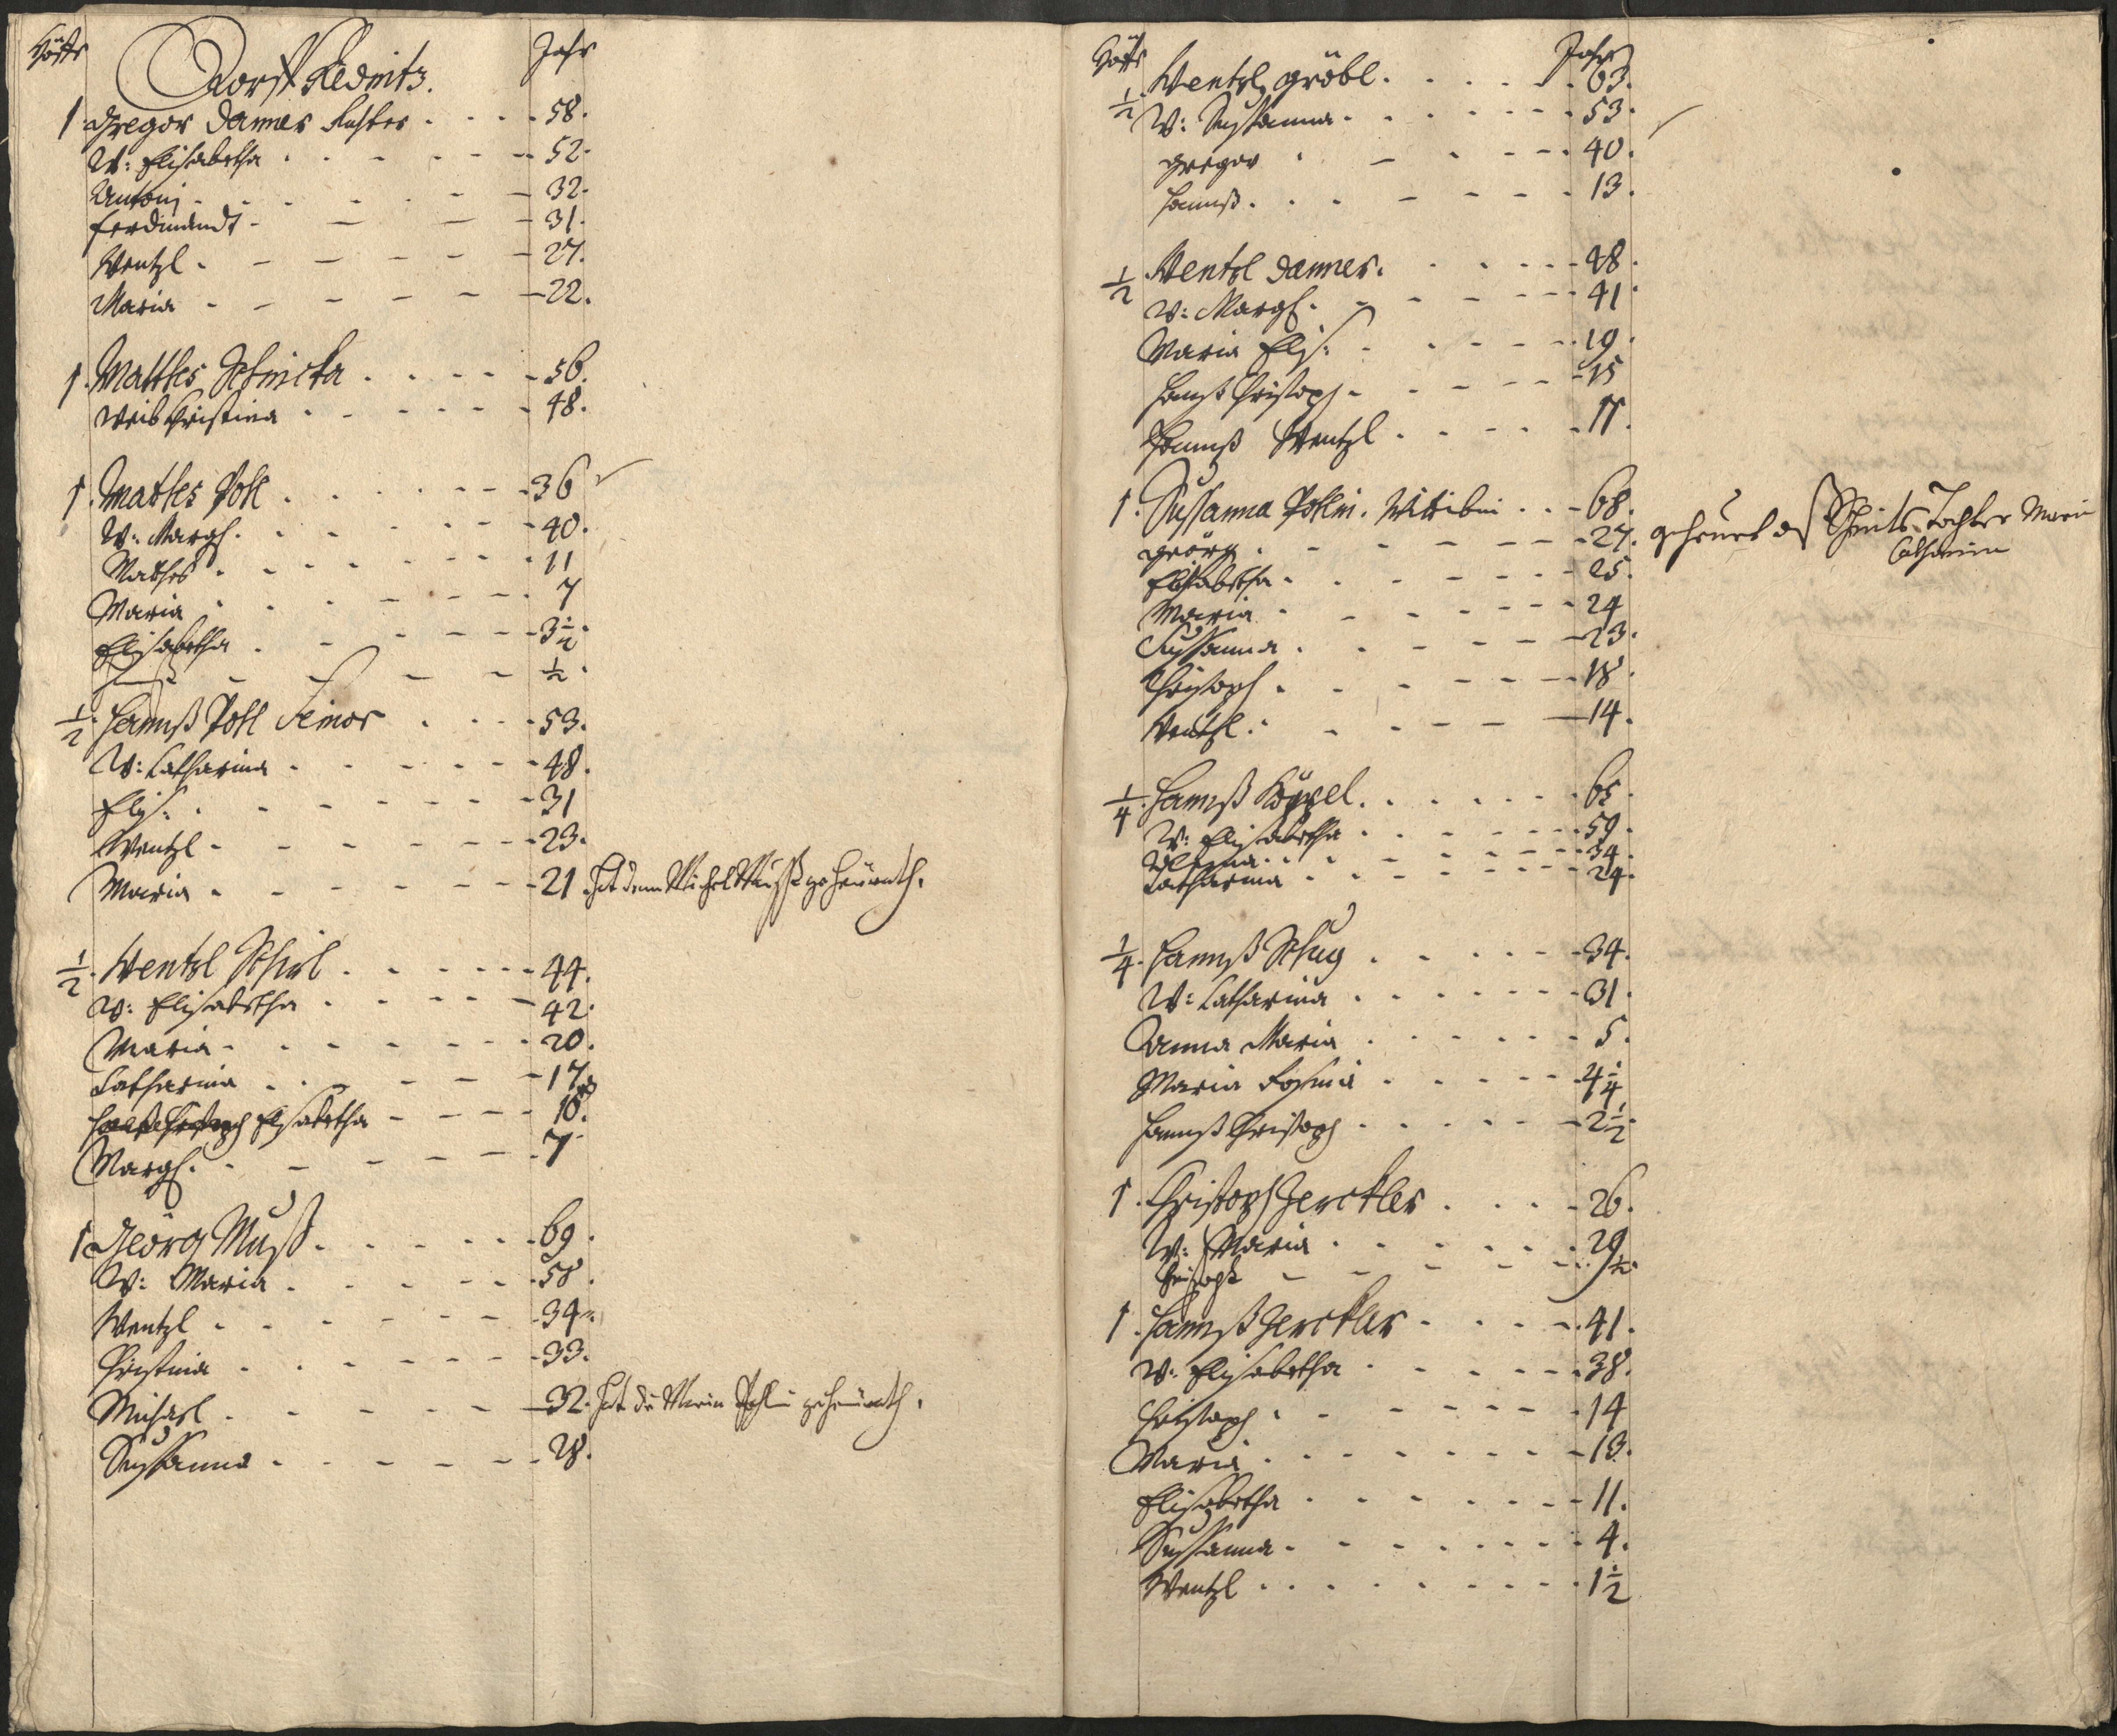 Höffe Dorff Rednitz. Jahr
1 Gregor Danner Richter 58.
W: Elisabetha 52.
Antoni 32.
Ferdinandt 31.
Wentzl 27.
Maria 22.
1. Matthes 56.
Weib Christina 48.
1. Matthes Pohl 36
W: Margh. 40.
Mathes 11
Maria 7
Elisabetha 3½.
Hannß ½.
½. Hannß Pohl Senior 53.
W: Catharina 48.
Elis: 31
Wentzl 23.
Maria 21. Hat denn Michel Muß geheürath.
½. Wentzl 44.
W: Elisabetha 42.
Maria 20.
Catharina 17.
Elisabetha 10.
Margh. 7.
1 Georg Muß 69.
W: Maria 58.
Wentzl 34.
Christina 33.
Michael 32. Hat die Maria Pohlin geheürath.
Susanna 28.
Höffe Jahr
½ Wentzl Gröbl 63.
W: Susanna 53.
Gregor 40.
Hannß 13.
½ Wentzl Danner 48.
W: Margh. 41
Maria Elis: 19.
Hannß Christoph 15
Hannß Wentzl 11.
1. Susanna Pohlin. Wittibin 68.
Geörg 27. geheürt Tochter Maria
Catharina
Elisabetha 25.
Maria 24
Sussanna 23.
Christoph 18.
Wentzl 14.
¼. Hannß Köppel 65.
W: Elisabetha 59.
34.
Catharina 24.
¼. Hannß Schug 34.
W: Catharina 31.
Anna Maria 5.
Maria Rosina 4¼
Hannß Christoph 2½.
1. Christoph Zerckler 26.
W: Maria 29
Christoph ½.
1. Hannß Zerckler 41.
W: Elisabetha 38.
Christoph 14
Maria 13.
Elisabetha 11.
Sussanna 4.
Wentzl 1½